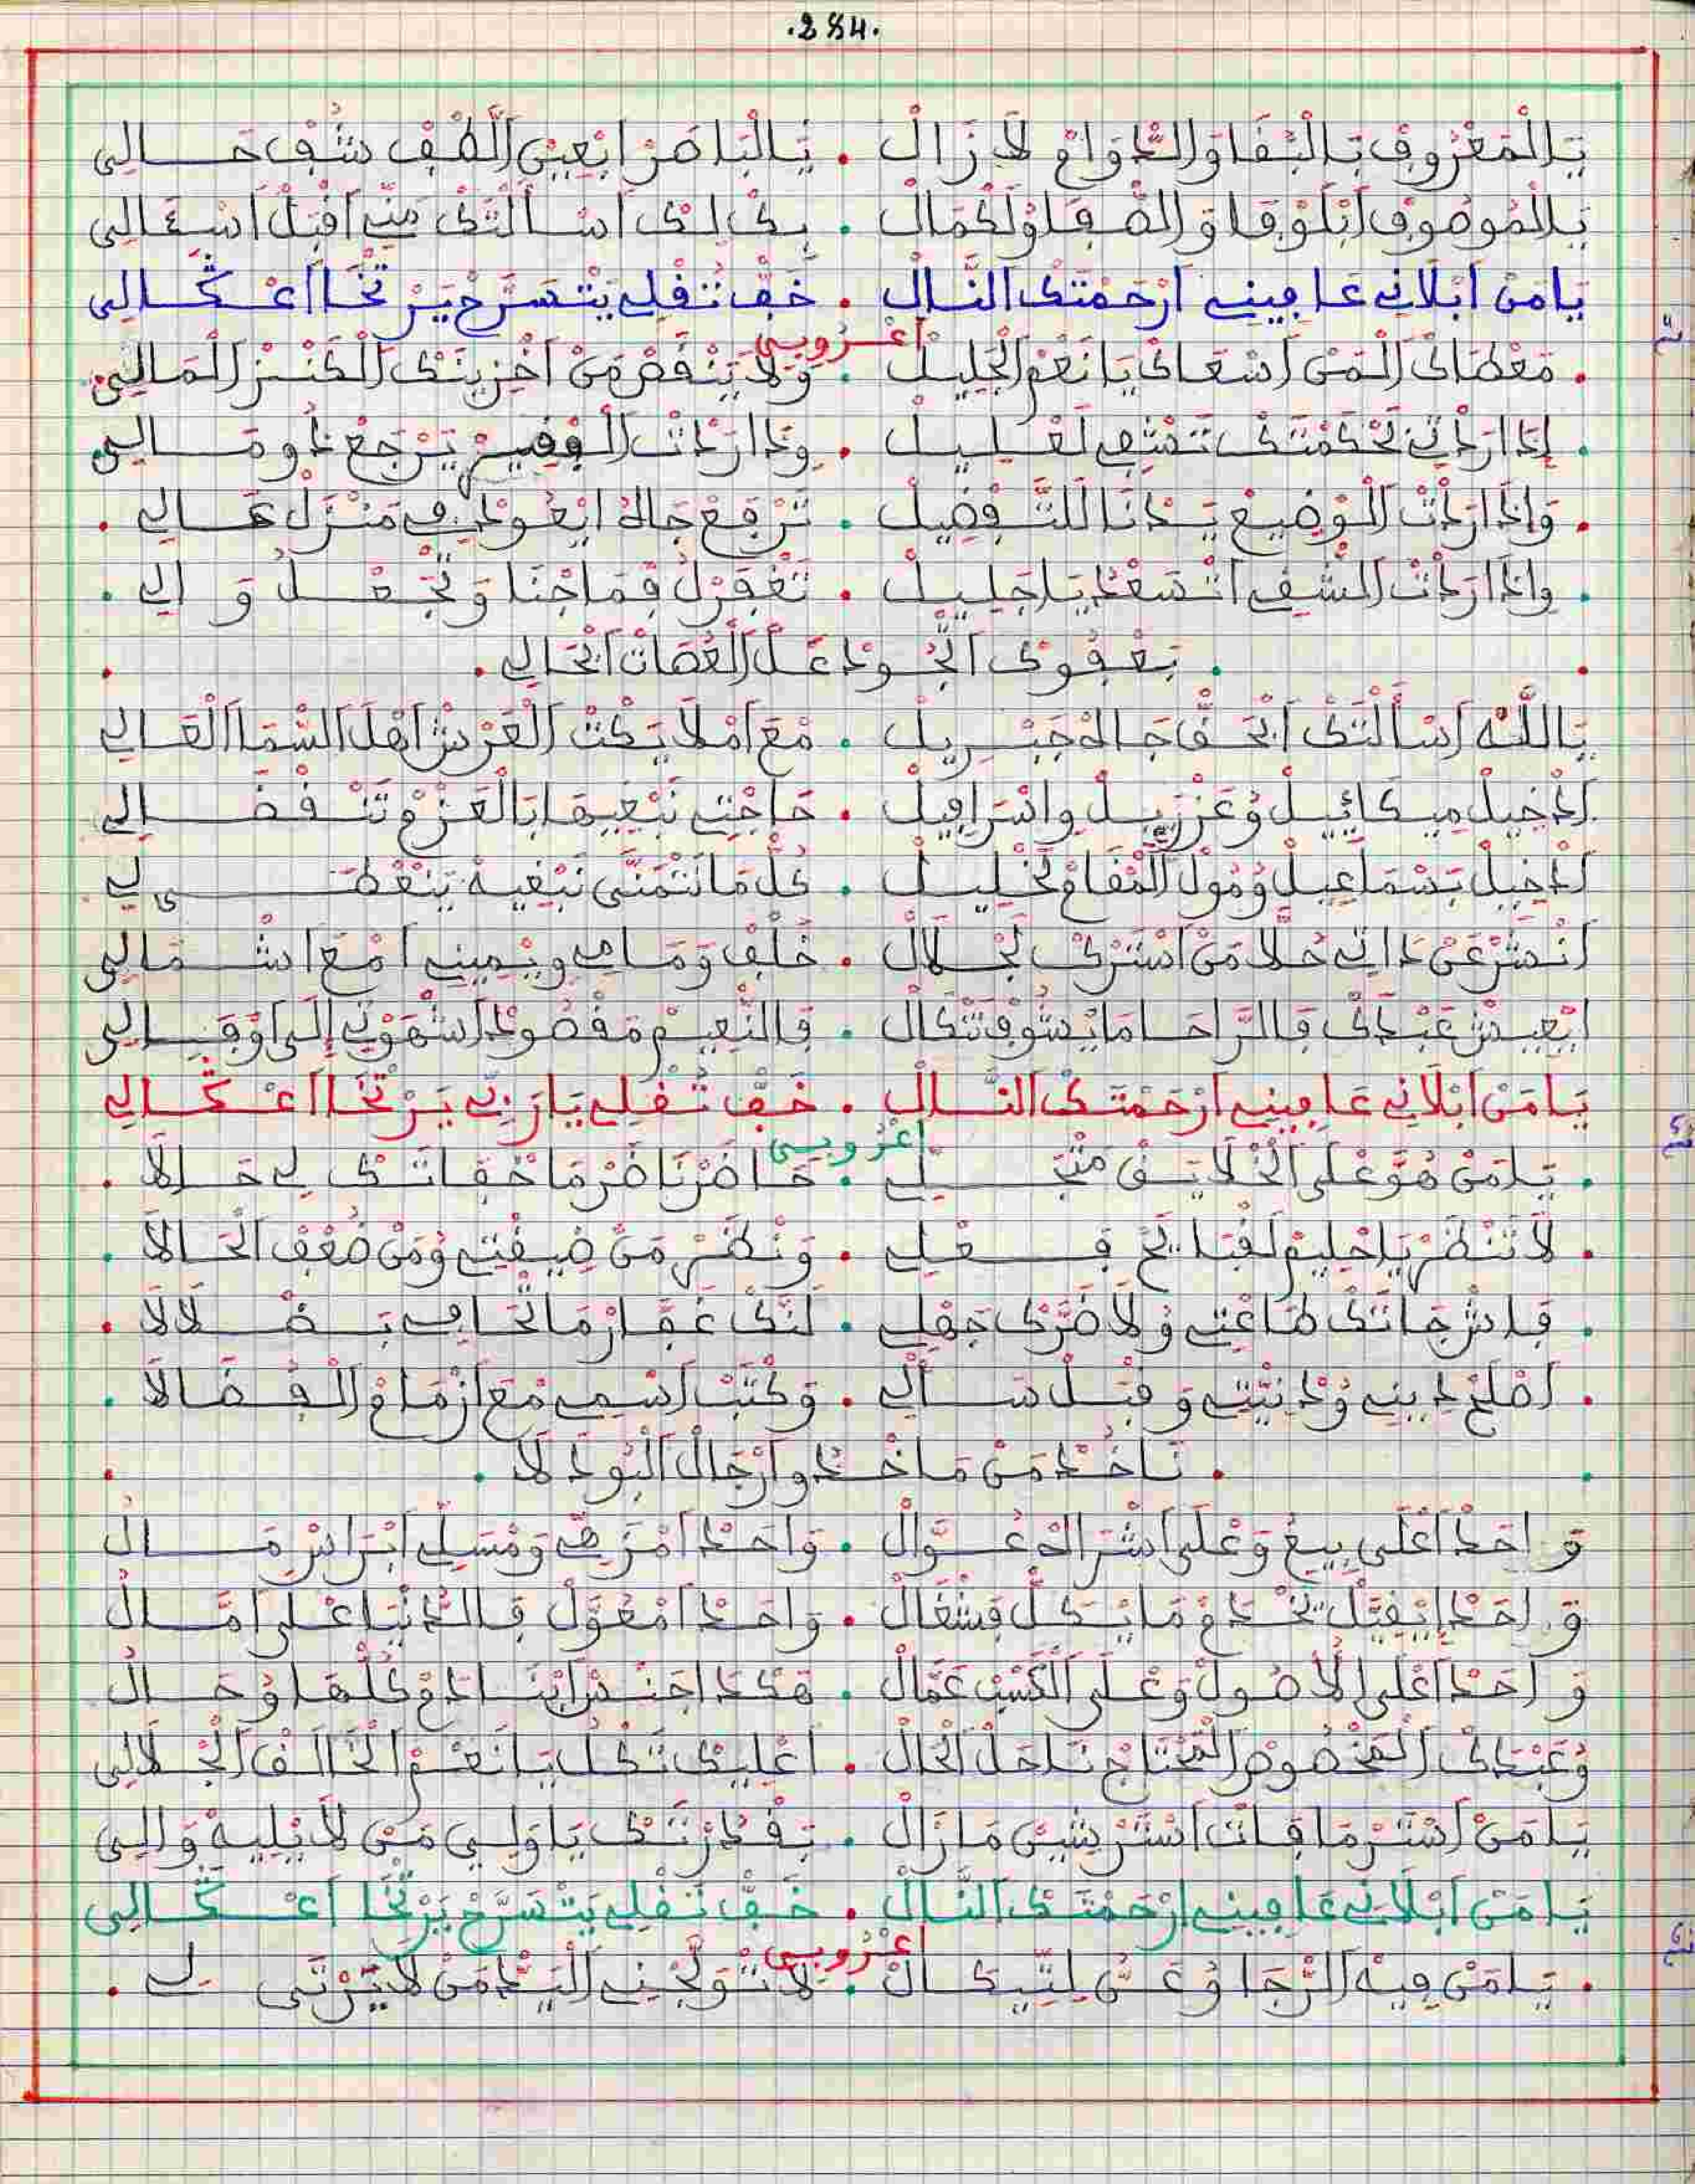 .284.
يَالْمَعْرُوفْ بَالْبْقَا وَالدَّوَامْ لاَ زَالْ . يَالْبَاصَرْ ابْعِينِي اَلْطُفْ شُفْ حَالِي
يَالْمُوصُوفْ ابْلَوْفَا وَالصّْفَا وُلَكْمَالْ . بِكْ لَكْ اَسْأَلْتَكْ مَنِّي اَقْبَلْ اَسْءَالِي
يَا مَنْ ابْلاَنِي عَافِينِي اَرْحَمْتَكْ اَنَّالْ . خَفّْ ثُقْلِي يَتْسَرَّحْ يَرْتْخَا اَعْكَالِي
اعْرُوبِي
. مَعْطَاكْ اَلْمَنْ اَسْعَاكْ يَا نَعْمَ الْجَلِيلْ . وَلاَ يَنْقَصْ مَنْ اَخْزِينَكْ اَلْكَنْزْ اَلْمَالِي.
. إِذَا ارَدْتِ بَحْكَمْتَكْ تَشْفِي لَعْلِيلْ . وَذَا ارَدْتْ اَلْوْفِيعْ يَرْجَعْ دُو مَالِي.
. وَإِذَا ارَدْتْ اَلْوْضِيعْ يَدْنَا لَلتَّفْضِيلْ . تَرْفَعْ جَاهُ ايْعُودْ فِي مَنْزَلْ عَالِي .
. وَإِذَا ارَدْتْ اَلشّْقِي اَتْسَعْدُ يَا جَلِيلْ . تَغْفَرْلُ فِمَا جْنَا وَتْجَعْلُ وَالِي .
. بَعْفُوكْ اَلْجُودْ عَلَّ اَلْعُصَاتْ اَنْجَالِي .
يَا اللَّه اَسْأَلْتَكْ ابْحَقّْ جَاهْ جَبْرِيلْ . مْعَ اَمْلاَيَكْتْ اَلْعَرْشْ اَهْلَ السّْمَا اَلْعَالِي
اَدْخِيلْ مِيكَائِيلْ وُعَزْرِيلْ وِاسْرَافِيلْ . حَاجْتِي نَبْغِيهَا بَالْعَزْمْ تَنْقْضَالِي
اَدْخِيلْ يَسْمَاعِيلْ وُمُولْ اَلْمْقَامْ لَخْلِيلْ . كُلّْ مَا نَتْمَنَّى نَبْغِيهْ يَنْعْطَى لِي
اَنْشَرْ عَنْ دَاتِي حُلاَّ مَنْ اَسْتَرْكْ لَجْلاَلْ . خَلْفْ وَمَامِي وِيْمِينِي اَمْعَ اَشْمَالِي
ايْعِيشْ عَبْدَكْ فَالرَّاحَا مَا يْشُوفْ تَنْكَالْ . فَالنّْعِيمْ مَقْصُودْ اَشْهَوْتِي إِلَى اَوْفَى لِي
يَا مَنْ ابْلاَنِي عَافِينِي اَرْحَمْتَكْ اَنَّالْ . خَفّْ ثُقْلِي يَا رَبِّي يَرْتْخَا اَعْكَالِي
اعْرُوبِي
. يَا مَنْ هُوَّ عْلَى اَلْخْلاَيَقْ مَتْجَلِّي . حَاضَرْ نَاضَرْ مَا خْفَاتَكْ لِي حَالاَ .
. لاَ تَنْظَرْ يَا حْلِيمْ لَقْبَايَحْ فِعْلِي . وَنْظَرْ مَنْ ضِيقْتِي وُمَنْ ضُعْفْ اَلْحَالاَ .
. فَاشْ جَاتَكْ طَاعْتِي وُلاَ ضَرَّكْ جَهْلِي . لَنَّكْ غَفَّارْ مَا تْحَافِي بَضْلاَلاَ .
. اَصْلَحْ دِينِي وُدْنِيْتِي وَقْبَلْ سَأْلِي . وَكْتَبْ اَسْمِي مْعَ اَزْمَامْ اَلْفُضَالاَ .
. نَاخُدْ مَنْ مَا خْدُو اَرْجَالْ اَلْبُودَلاَ .
وَاحَدْ اَعْلَى بِيعُ وَعْلَى اَشْرَاهْ غُوَّالْ . وَاحَدْ اَمْزَهِّي وَمْسَلِّي ابْرَاسْ مَالُ
وَاحَدْ ايْفَيَّلْ يَخْدَمْ مَا يْكَلّْ فَشْغَالُ . وَاحَدْ اَمْعَوَّلْ فَالدَّنْيَا عْلَى اَمَّالُ
وَاحَدْ اَعْلَى الاُصُولْ وَعْلَى اَلْكَسْبْ عَمَّالْ . هَكْدَا اَجْنَسْ ابْنَادَمْ كُلّْهَا وُحَالُ
وُعَبْدَكْ اَلْمَخْصُوصْ اَلْمَحْتَاجْ نَاحَلْ اَلْحَالْ . اَعْلِيكْ تَكْلُ يَا نَعْمَ اَلْخَالَقْ اَلْجْلاَلِي
يَا مَنْ اَسْتَرْ مَا فَاتْ اَسْتَرْ شِينْ مَازَالْ . بَقْدَرْتَكْ يَا وَلِي مَنْ لاَ يْلِيهْ وَالِي
يَا مَنْ ابْلاَنِي عَافِينِي اَرْحَمْتَكْ اَنَّالْ . خَفّْ ثُقْلِي يَتْسَرَّحْ يَرْتْخَا اَعْكَالِي
اعْرُوبِي
. يَا مَنْ فِيهْ اَلرّْجَا وُعَنُّ لِتِّيكَالْ . لاَ تْوَلْجْنِي اَلْيَدّْ مَنْ لاَ يَتْرْتَى لِي .